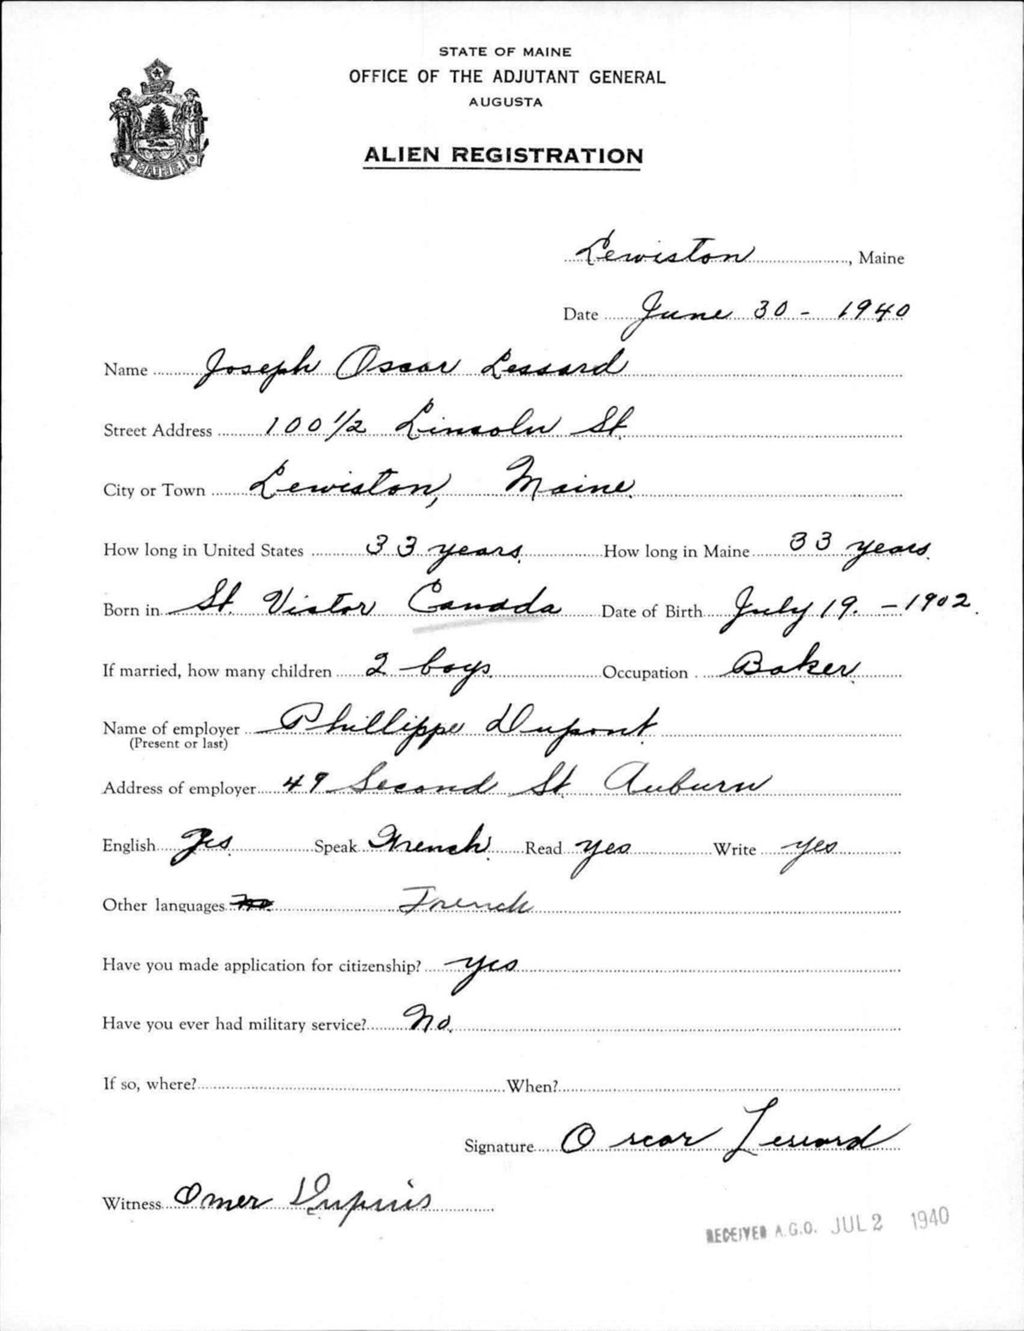 STATE OF MAINE
OFFICE OF THE ADJUTANT GENERAL
AUGUSTA
ALIEN REGISTRATION
MAINE
Lewiston, Maine
Date June 30 - 1940
Name Joseph Oscar Lessard
Street Address 100 1/2 Lincoln St
City or Town Lewiston, Maine.
How long in United States 33 years. How long in Maine 33 years.
Born in St. Victor Canada Date of Birth July 19. - 1902.
If married, how many children 2 boys. Occupation Baker.
Name of employer Phillippe Dupont
(Present or last)
Address of employer 49 Second St Auburn
English Yes. Speak French. Read yes Write yes
Other languages no. French
Have you made application for citizenship? yes
Have you ever had military service? No.
If so, where? When?
Signature Oscar Lessard
Witness Omer Dupuis
RECEIVED A.G.O. JUL 2 1940